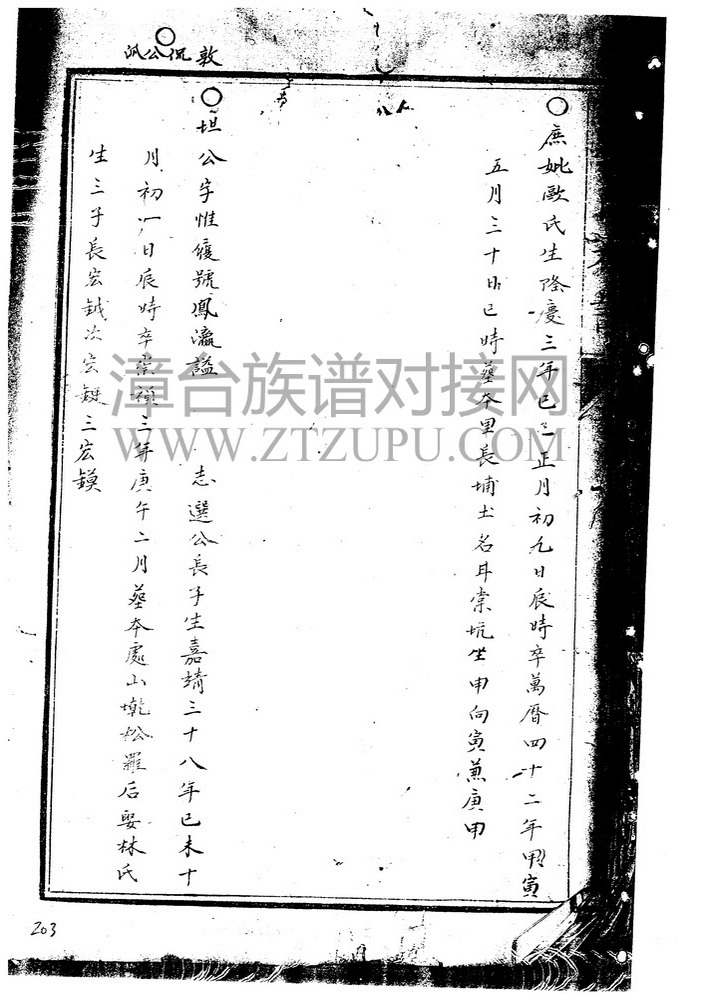 敦侃公派
庶妣歐氏生隆慶三年己巳正月初九日辰時卒萬曆四十二年甲寅
五月三十日巳時葬本里長埔土名耳棠坑坐申向寅兼庚甲
坦公字惟馥號鳳瀛謚 志選公長子生嘉靖三十八年己未十
月初一日辰時卒崇禎三年庚午二月葬本處山乾松羅后娶林氏
生三子長宏鉞次宏鍰三宏鏌
漳台族谱对接网
WWW.ZTZUPU.COM
203